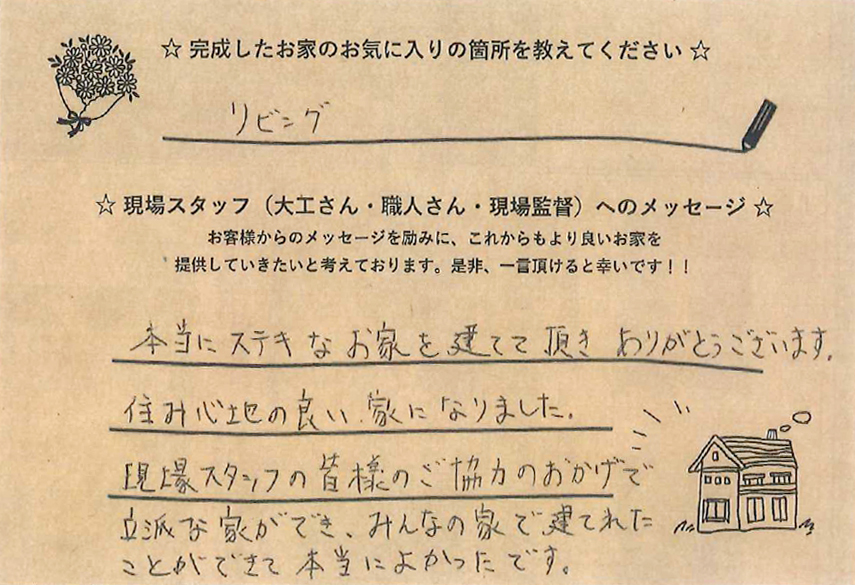 ☆ 完成したお家のお気に入りの箇所を教えてください ☆
リビング
☆ 現場スタッフ（大工さん・職人さん・現場監督）へのメッセージ ☆
お客様からのメッセージを励みに、これからもより良いお家を
提供していきたいと考えております。是非、一言頂けると幸いです！！
本当にステキなお家を建てて頂き ありがとうございます。
住み心地の良い家になりました。
現場スタッフの皆様のご協力のおかげで
立派な家ができ、みんなの家で建てれた
ことができて本当によかったです。